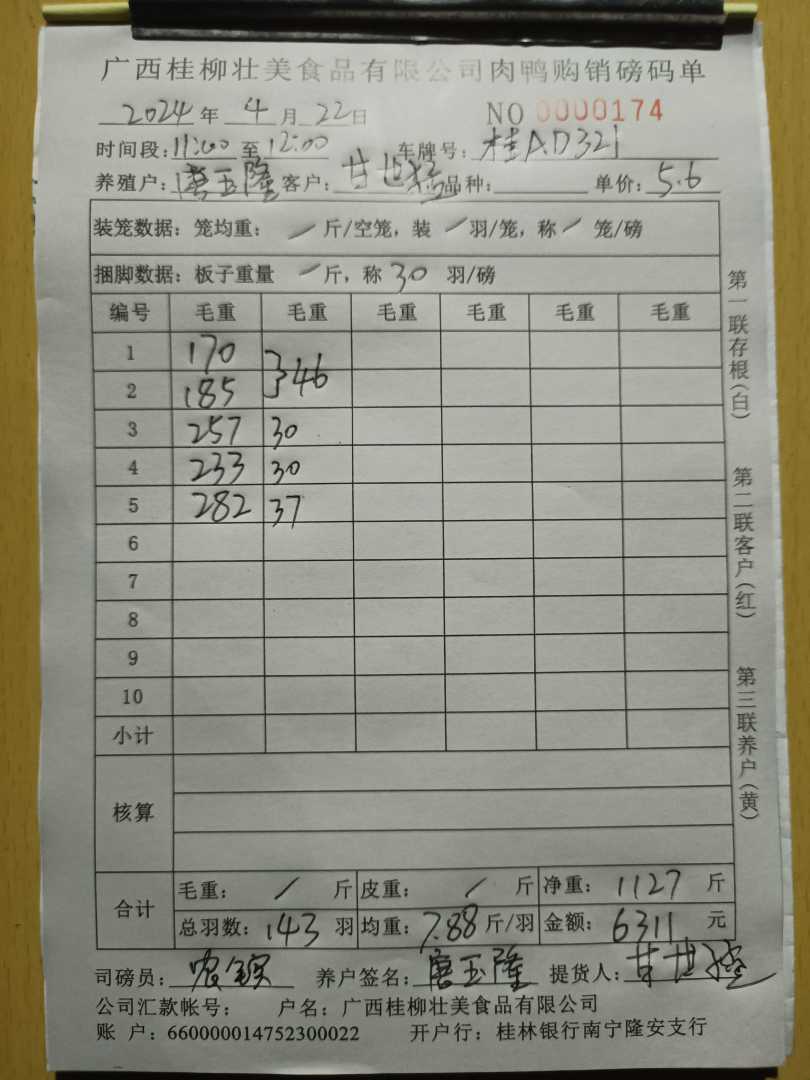 广西桂柳壮美食品有限公司肉鸭购销磅码单
2024年 4月 22日 NO 0000174
时间段: 11:00 至 12:00 车牌号: 桂AD321
养殖户: 唐玉隆 客户: 甘世 品种: 单价: 5.6
装笼数据: 笼均重: / 斤/空笼, 装 / 羽/笼, 称 / 笼/磅
捆脚数据: 板子重量 / 斤, 称 30 羽/磅
编号 毛重 毛重 毛重 毛重 毛重 毛重
1 170
2 185 }46
3 257 30
4 233 30
5 282 37
6
7
8
9
10
小计
核算
合计 毛重: / 斤 皮重: / 斤 净重: 1127 斤
总羽数: 143 羽 均重: 7.88 斤/羽 金额: 6311 元
司磅员: 养户签名: 唐玉隆 提货人: 甘世
公司汇款帐号: 户名: 广西桂柳壮美食品有限公司
账 户: 660000014752300022 开户行: 桂林银行南宁隆安支行
第一联存根(白)
第二联客户(红)
第三联养户(黄)